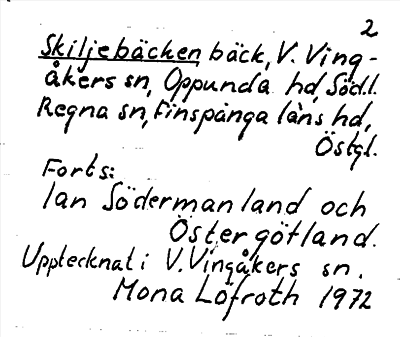 2
Skiljebäcken bäck, V. Ving-
åkers sn, Oppunda hd, Södl.
Regna sn, Finspånga läns hd,
Östgl.
Forts:
lan Södermanland och
Östergötland.
Upptecknat i V. Vingåkers sn.
Mona Löfroth 1972